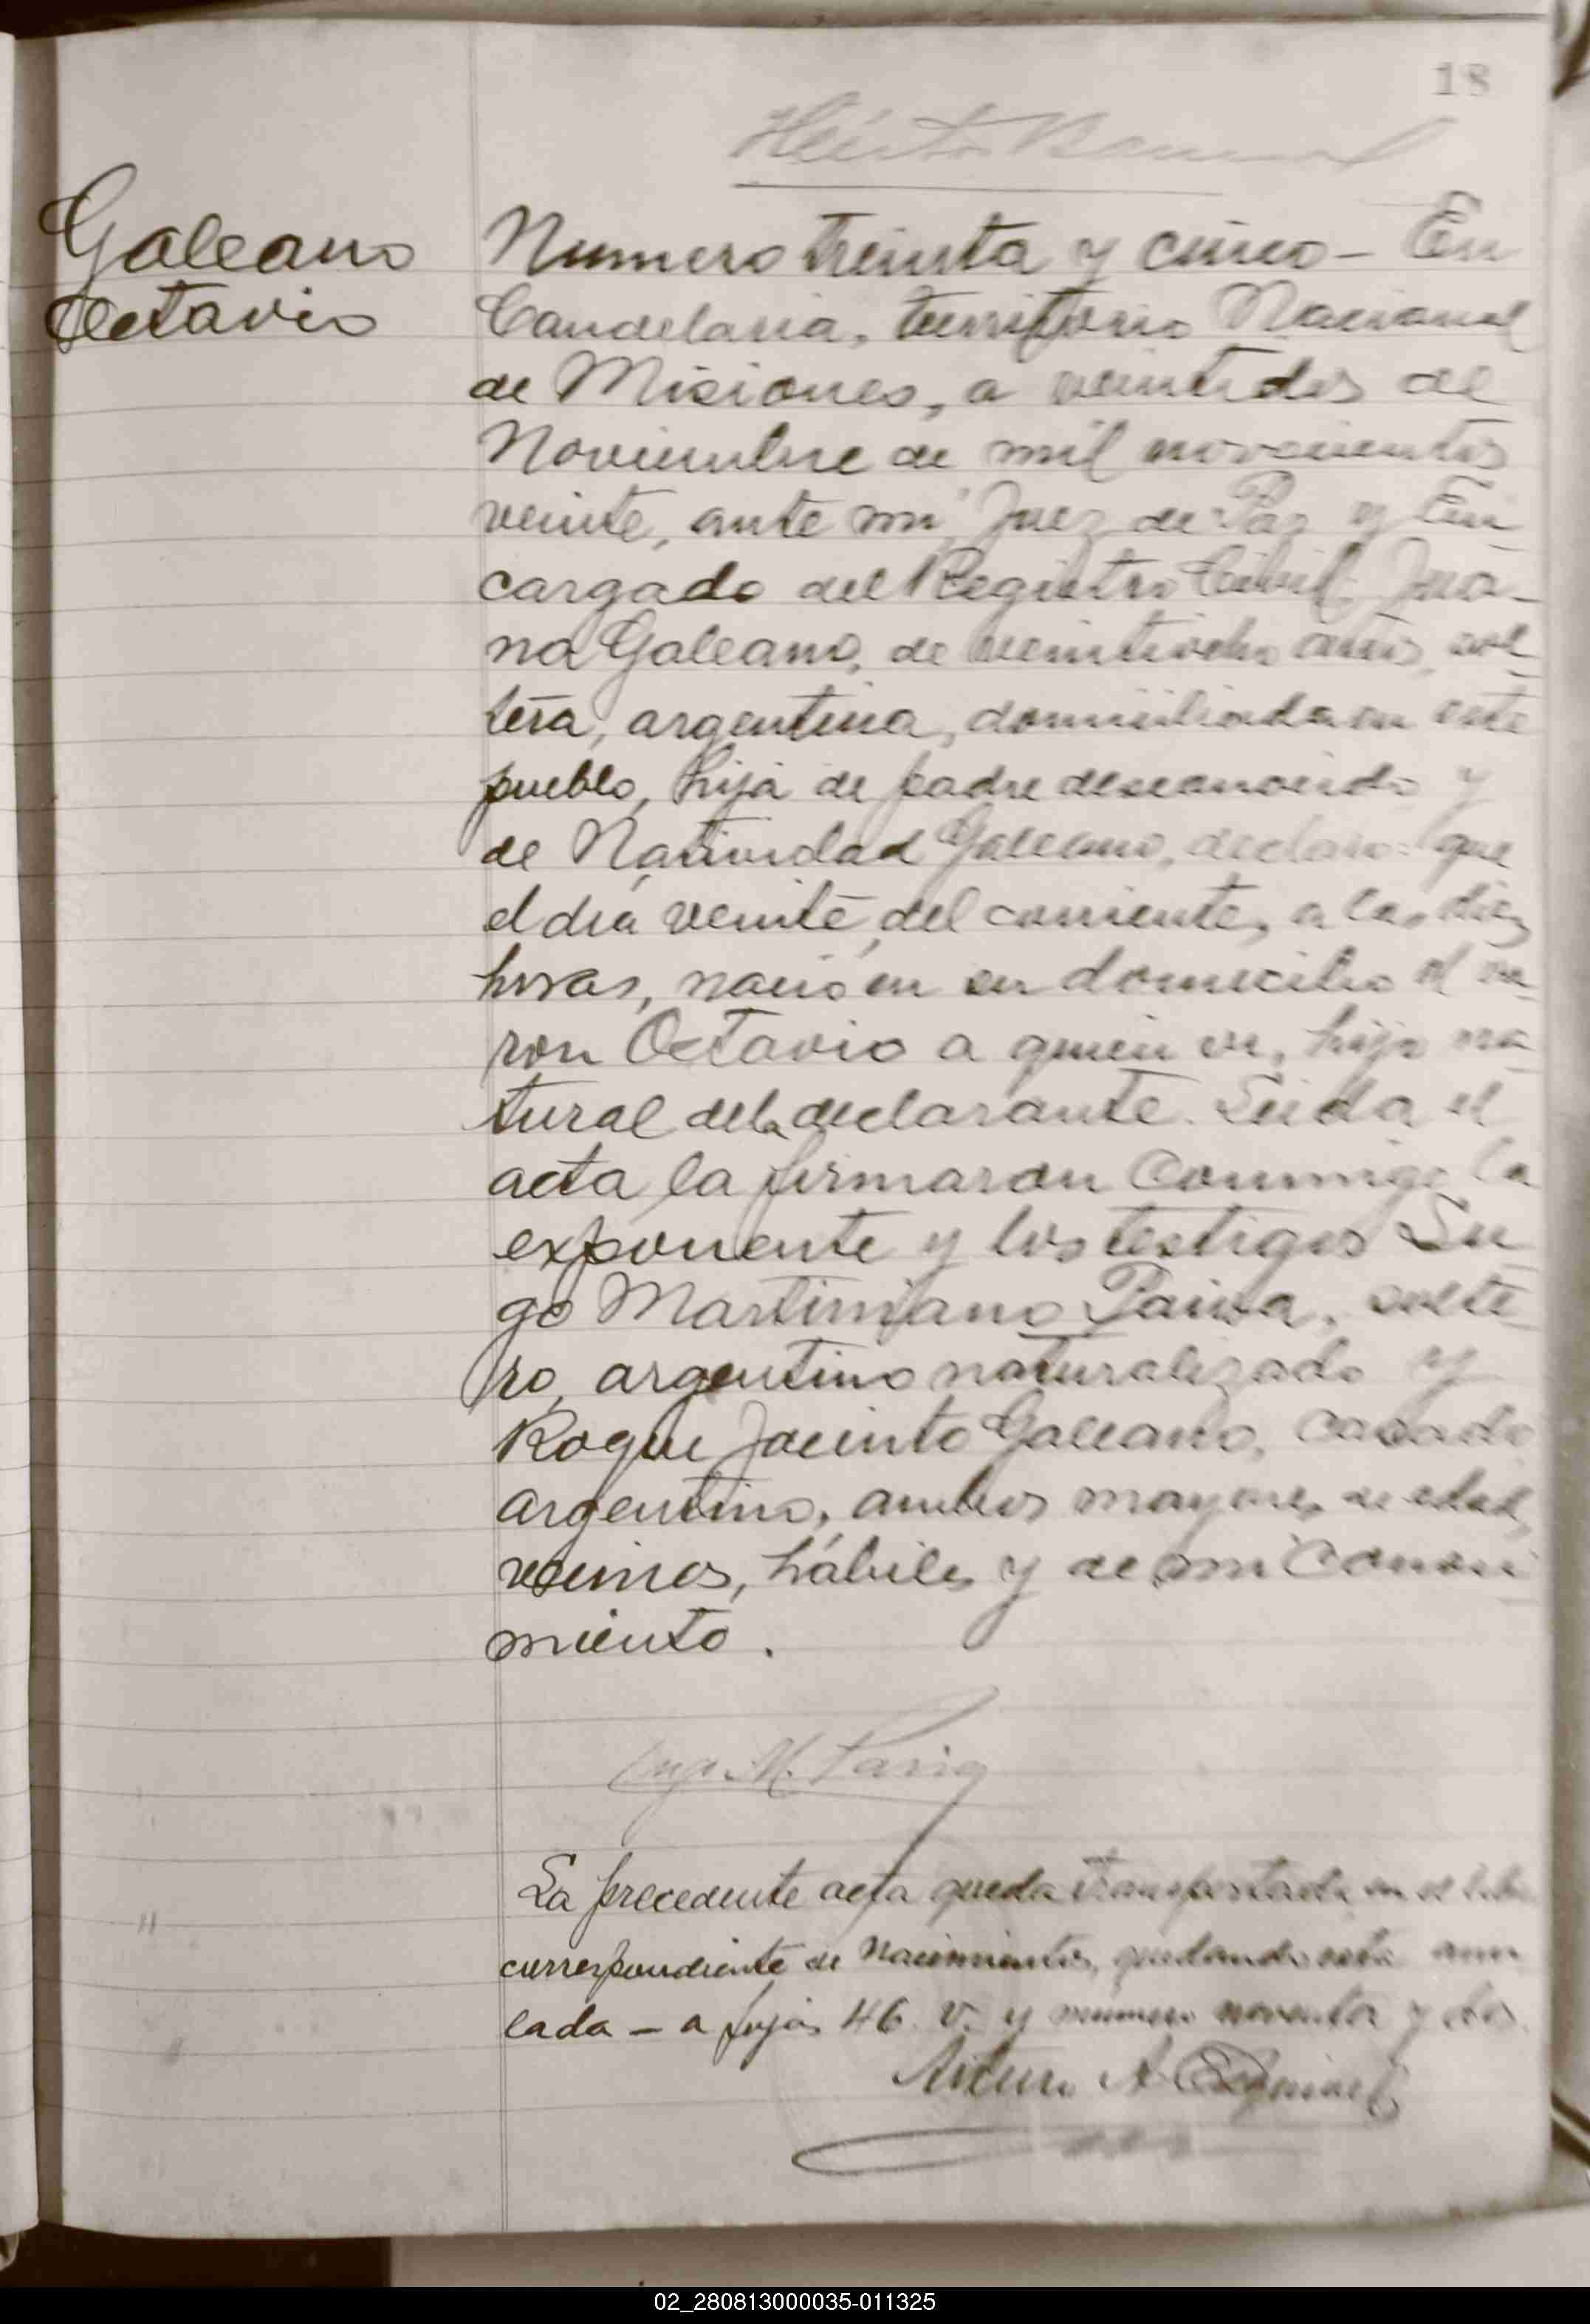 18
Galeano
Octavio
Numero treinta y cinco - En
Candelaria, territorio Nacional
de Misiones, a veintidos de
Noviembre de mil novecientos
veinte, ante mi, Juez de Paz y En
cargado del Registro Civil, Jua-
na Galeano, de veintiocho años, sol-
tera, argentina, domiciliada en este
pueblo, hija de padre desconocido y
de Natividad Galeano, declaro: que
el dia veinte del corriente, a las diez
horas, nació en su domicilio el va-
ron Octavio a quien vi, hijo na-
tural de la declarante. Leida el
acta la firmaron conmigo la
exponente y los testigos Lu-
go Martiniano Paiva, solte-
ro, argentino naturalizado y
Roque Jacinto Galeano, casado
argentino, ambos mayores de edad,
vecinos, hábiles y de mi conoci
miento.
La precedente acta queda transportada en el libro
correspondiente de Nacimientos, quedando esta anu
lada - a fojas 46 v. y numero noventa y dos.
Arturo A
02_280813000035-011325